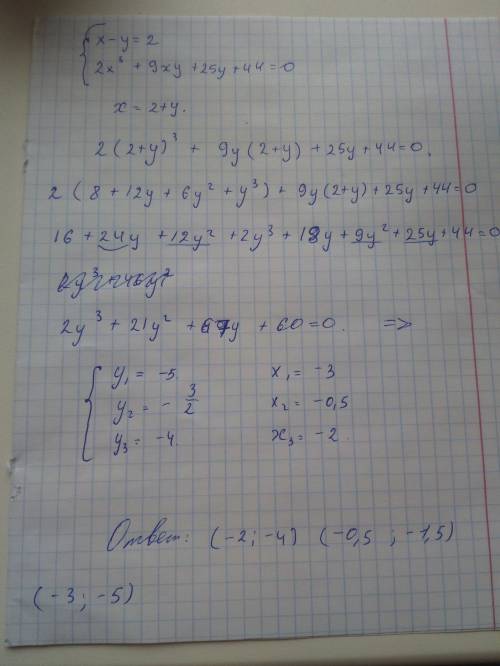 x - y = 2
2x³ + 9xy + 25y + 44 = 0
x = 2 + y.
2(2+y)³ + 9y(2+y) + 25y + 44 = 0.
2(8 + 12y + 6y² + y³) + 9y(2+y) + 25y + 44 = 0
16 + 24y + 12y² + 2y³ + 18y + 9y² + 25y + 44 = 0
2y³ + 21y² + 67y + 60 = 0. =>
y₁ = -5 x₁ = -3
y₂ = -3/2 x₂ = -0,5
y₃ = -4 x₃ = -2.
Ответ: (-2; -4) (-0,5 ; -1,5)
(-3; -5)